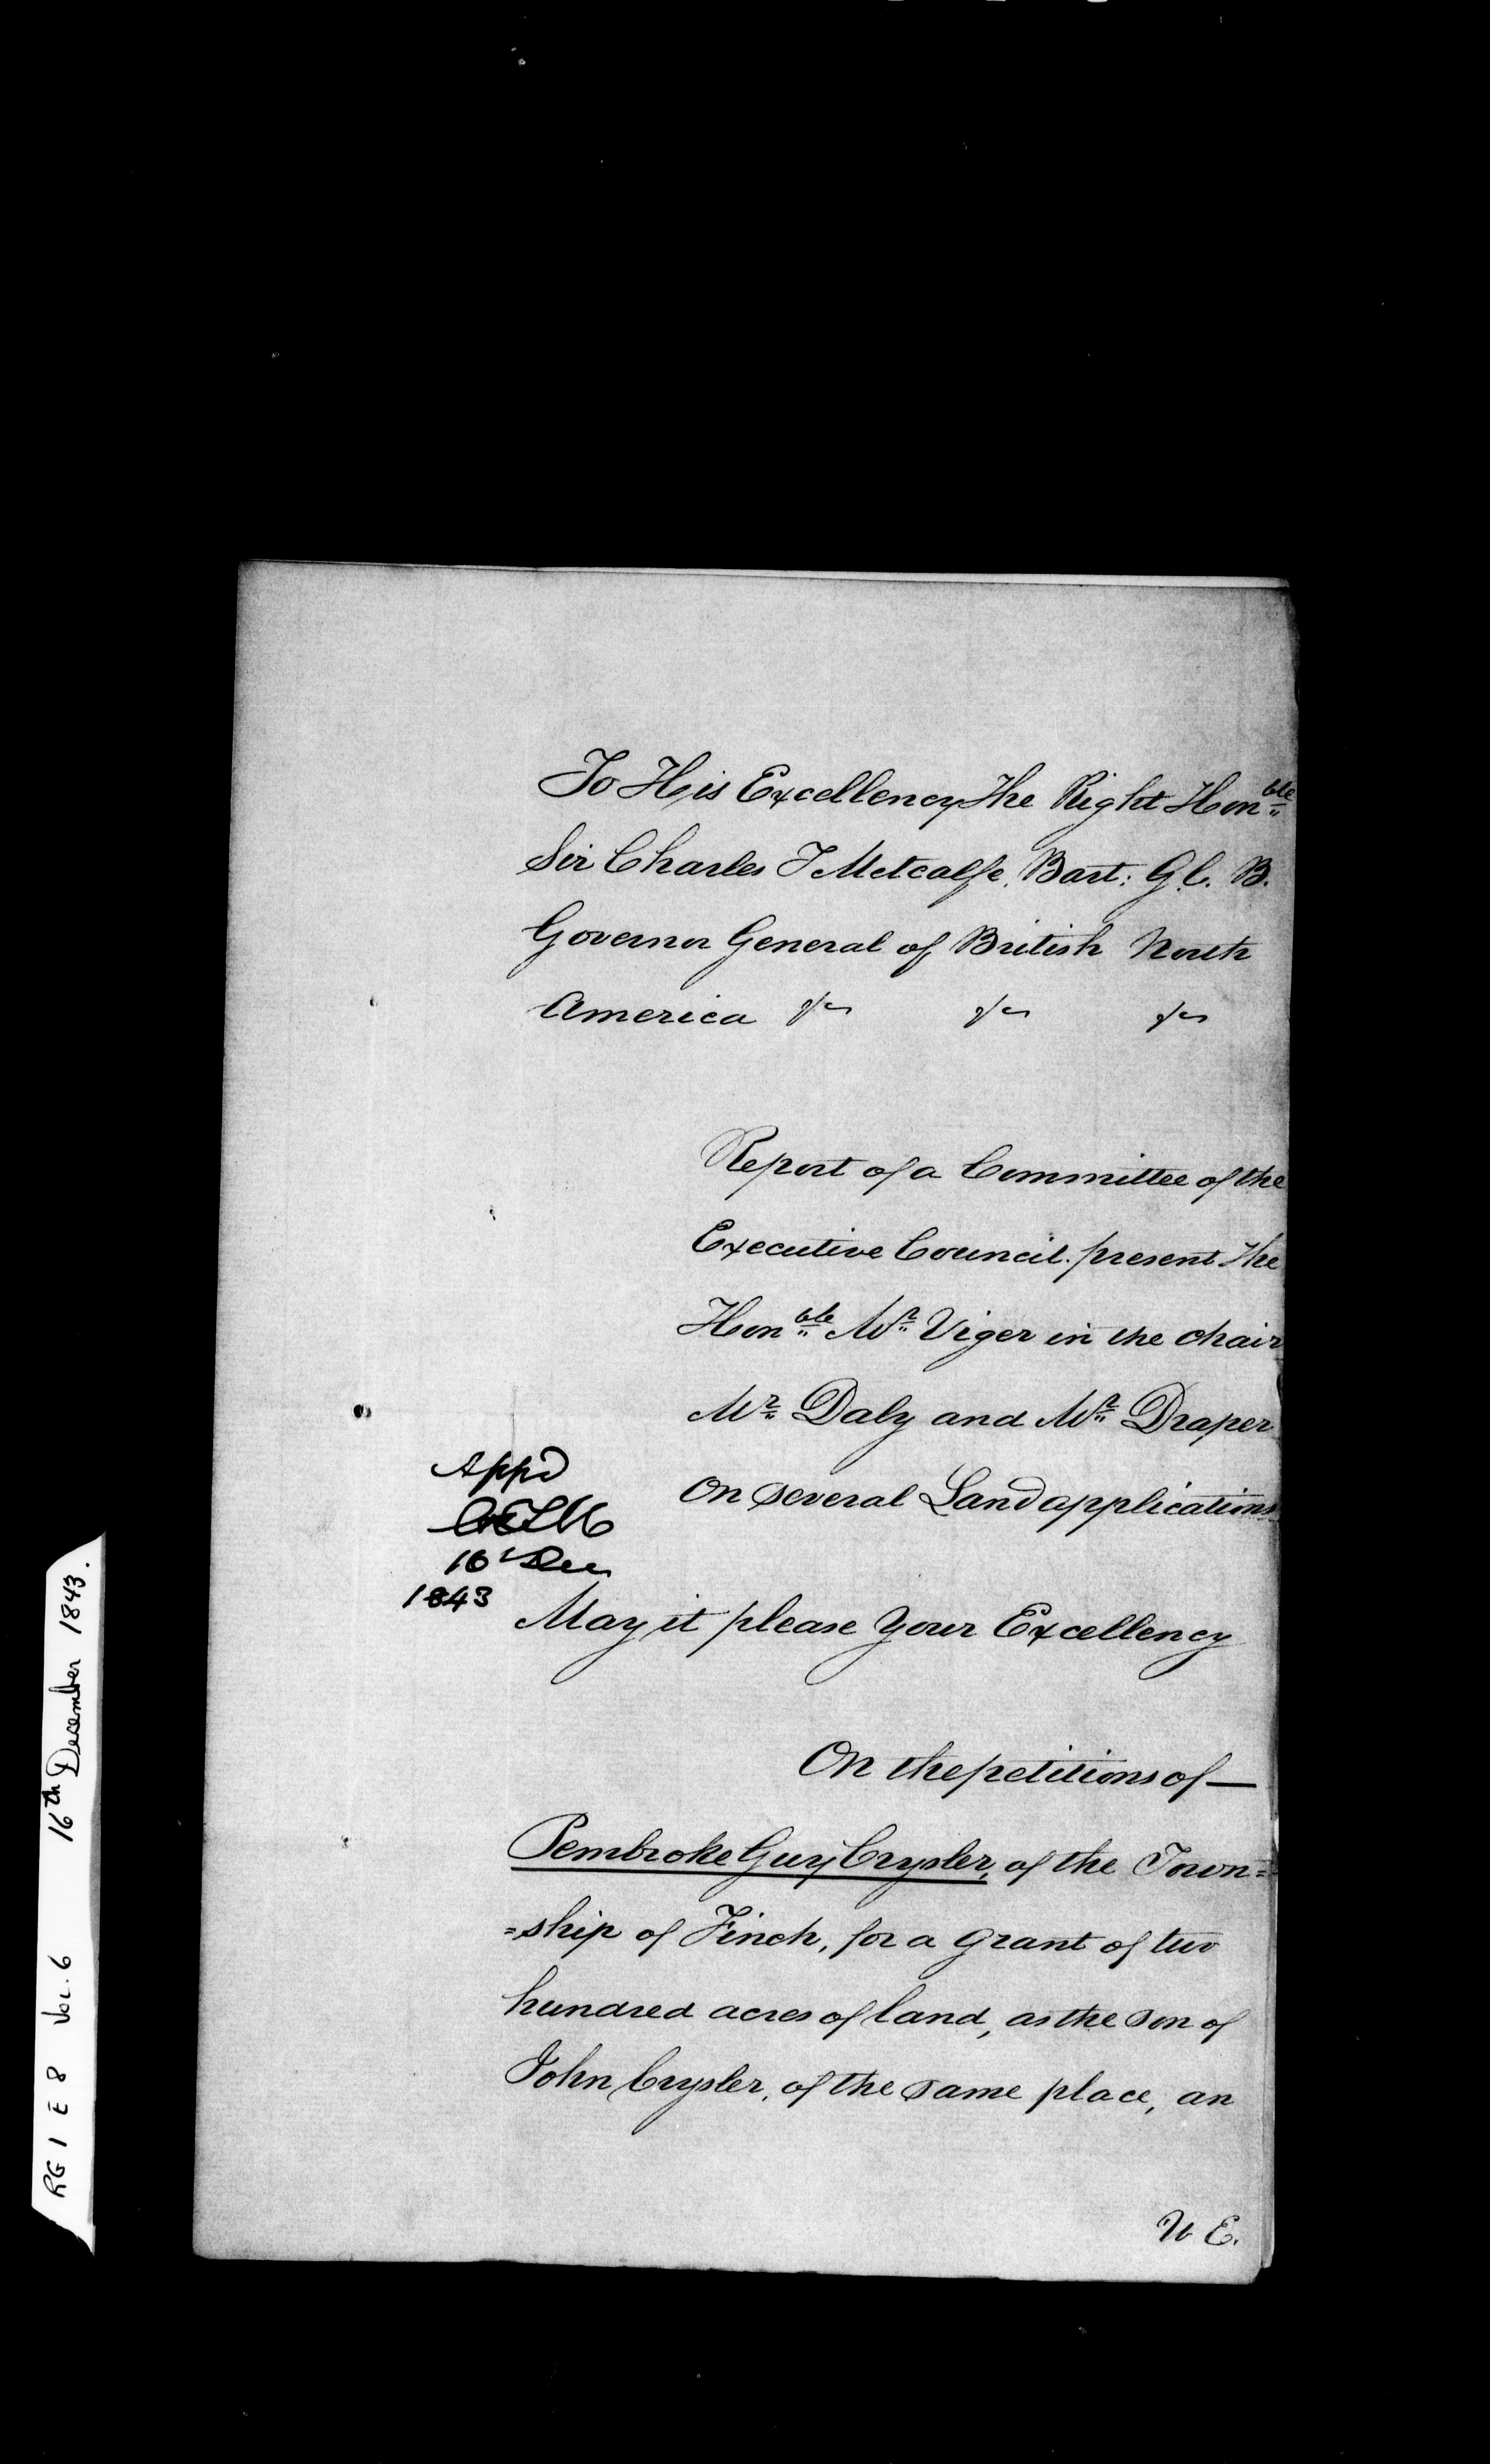 To His Excellency The Right Honble
Sir Charles T Metcalfe, Bart: G.C. B.
Governor General of British North
America &c &c &c
Report of a Committee of the
Executive Council. present The
Honble Mr Viger in the chair
Mr Daly and Mr Draper
On several Land applications
Appd
CTM
16 Dec
1843
May it please Your Excellency
On the petitions of —
Pembroke Guy Crysler, of the Town=
=ship of Finch, for a Grant of two
hundred acres of land, as the Son of
John Crysler, of the same place, an
U E.
RG 1 E 8 Vol. 6 16th December 1843.